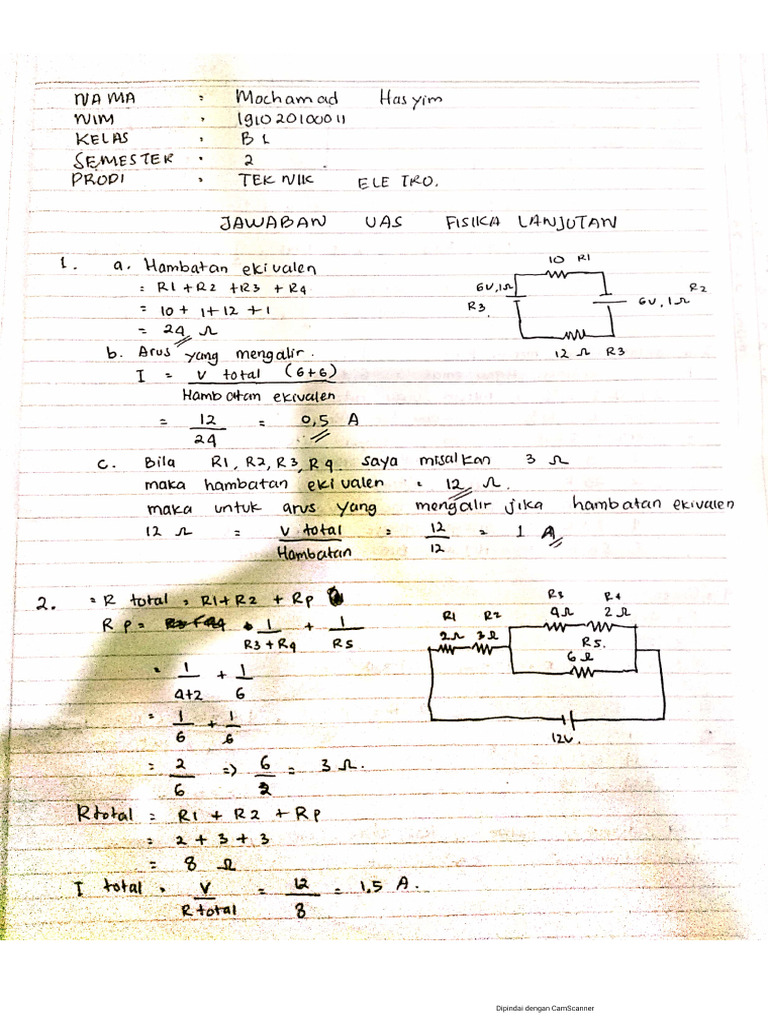 NAMA : Mochamad Hasyim
NIM : 191020100011
KELAS : B1
SEMESTER : 2
PRODI : TEKNIK ELETRO.
JAWABAN UAS FISIKA LANJUTAN
1. a. Hambatan ekivalen
= R1 + R2 + R3 + R4
= 10 + 1 + 12 + 1
= 24 Ω
10 R1
6V, 1Ω
R3
6V, 1Ω
R2
12 Ω R3
b. Arus yang mengalir.
I = V total (6+6)
Hambatan ekivalen
= 12 = 0,5 A
24
c. Bila R1, R2, R3, R4 saya misalkan 3 Ω
maka hambatan ekivalen = 12 Ω.
maka untuk arus yang mengalir jika hambatan ekivalen
12 Ω = V total = 12 = 1 A
Hambatan 12
2. = R total = R1 + R2 + Rp
Rp = 1 + 1
R3 + R4 R5
= 1 + 1
4+2 6
= 1 + 1
6 6
= 2 => 6 = 3 Ω.
6 2
R1 R2
2Ω 3Ω
R3 R4
4Ω 2Ω
R5.
6Ω
12V.
Rtotal = R1 + R2 + Rp
= 2 + 3 + 3
= 8 Ω
I total = V = 12 = 1,5 A.
R total 8
Dipindai dengan CamScanner